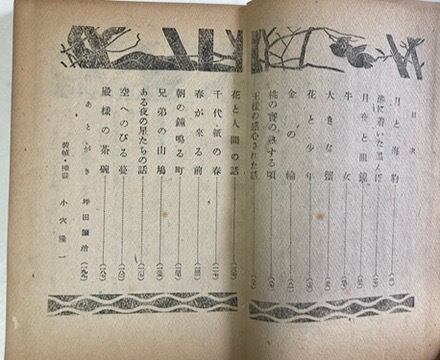 目次
月と海豹
港に着いた黒んぼ
月夜と眼鏡
牛女
大きな蟹
花と少年
金の輪
桃の實の熟する頃
王様の感心された話
花と人間の話
千代紙の春
春が來る前
朝の鐘鳴る町
兄弟の山鳩
ある夜の星たちの話
空へのびる蔓
殿様の茶碗
あとがき 坪田譲治
装幀・挿畫 小穴隆一